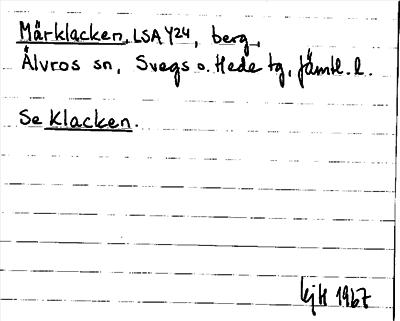 Märklacken, LSA Y24, berg,
Älvros sn, Svegs o. Hede tg, Jämtl. l.
Se Klacken.
1967